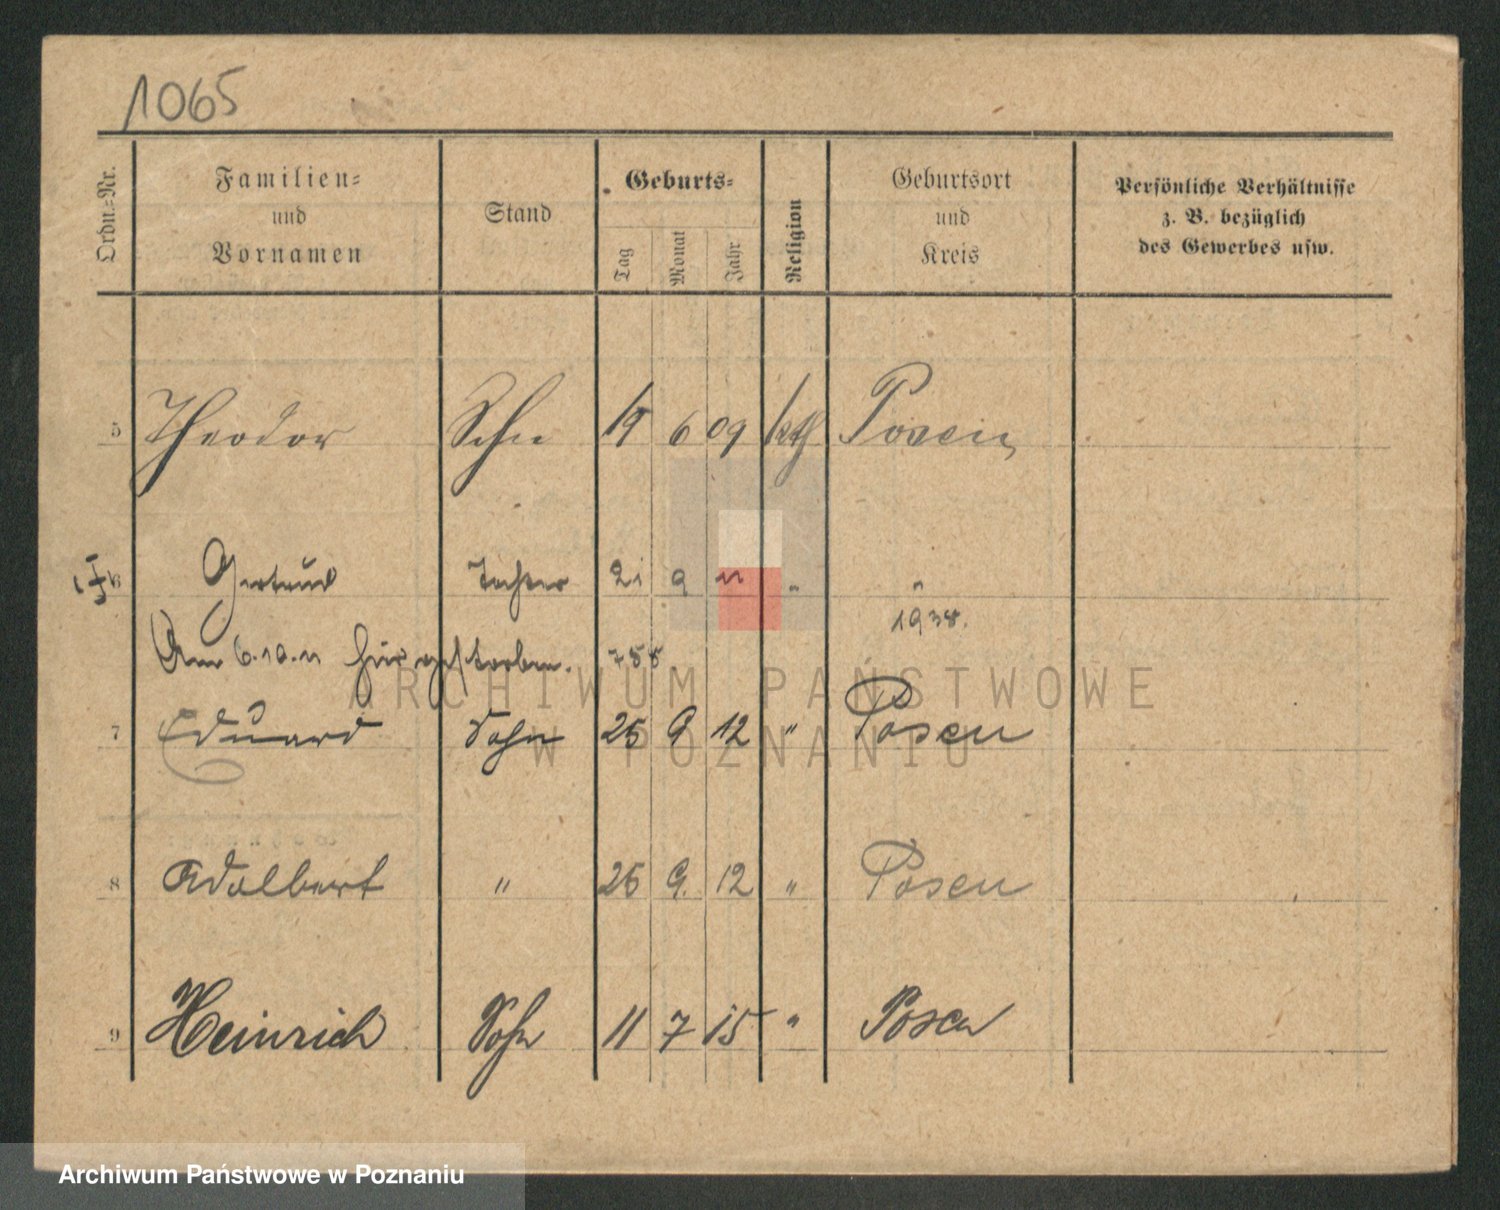 1065
Ordn.-Nr. Familien- und Vornamen Stand Geburts- Tag Monat Jahr Religion Geburtsort und Kreis Persönliche Verhältnisse z. B. bezüglich des Gewerbes usw.
5 Theodor Sohn 19 6 09 kth Posen
6 Gertrud Tochter 21 9 11 " "
1938.
Am 6.10.11 hier gestorben.
7 Eduard Sohn 25 9 12 " Posen
8 Adalbert " 25 9. 12 " Posen
9 Heinrich Sohn 11 7 15 " Posen
ARCHIWUM PAŃSTWOWE
W POZNANIU
Archiwum Państwowe w Poznaniu